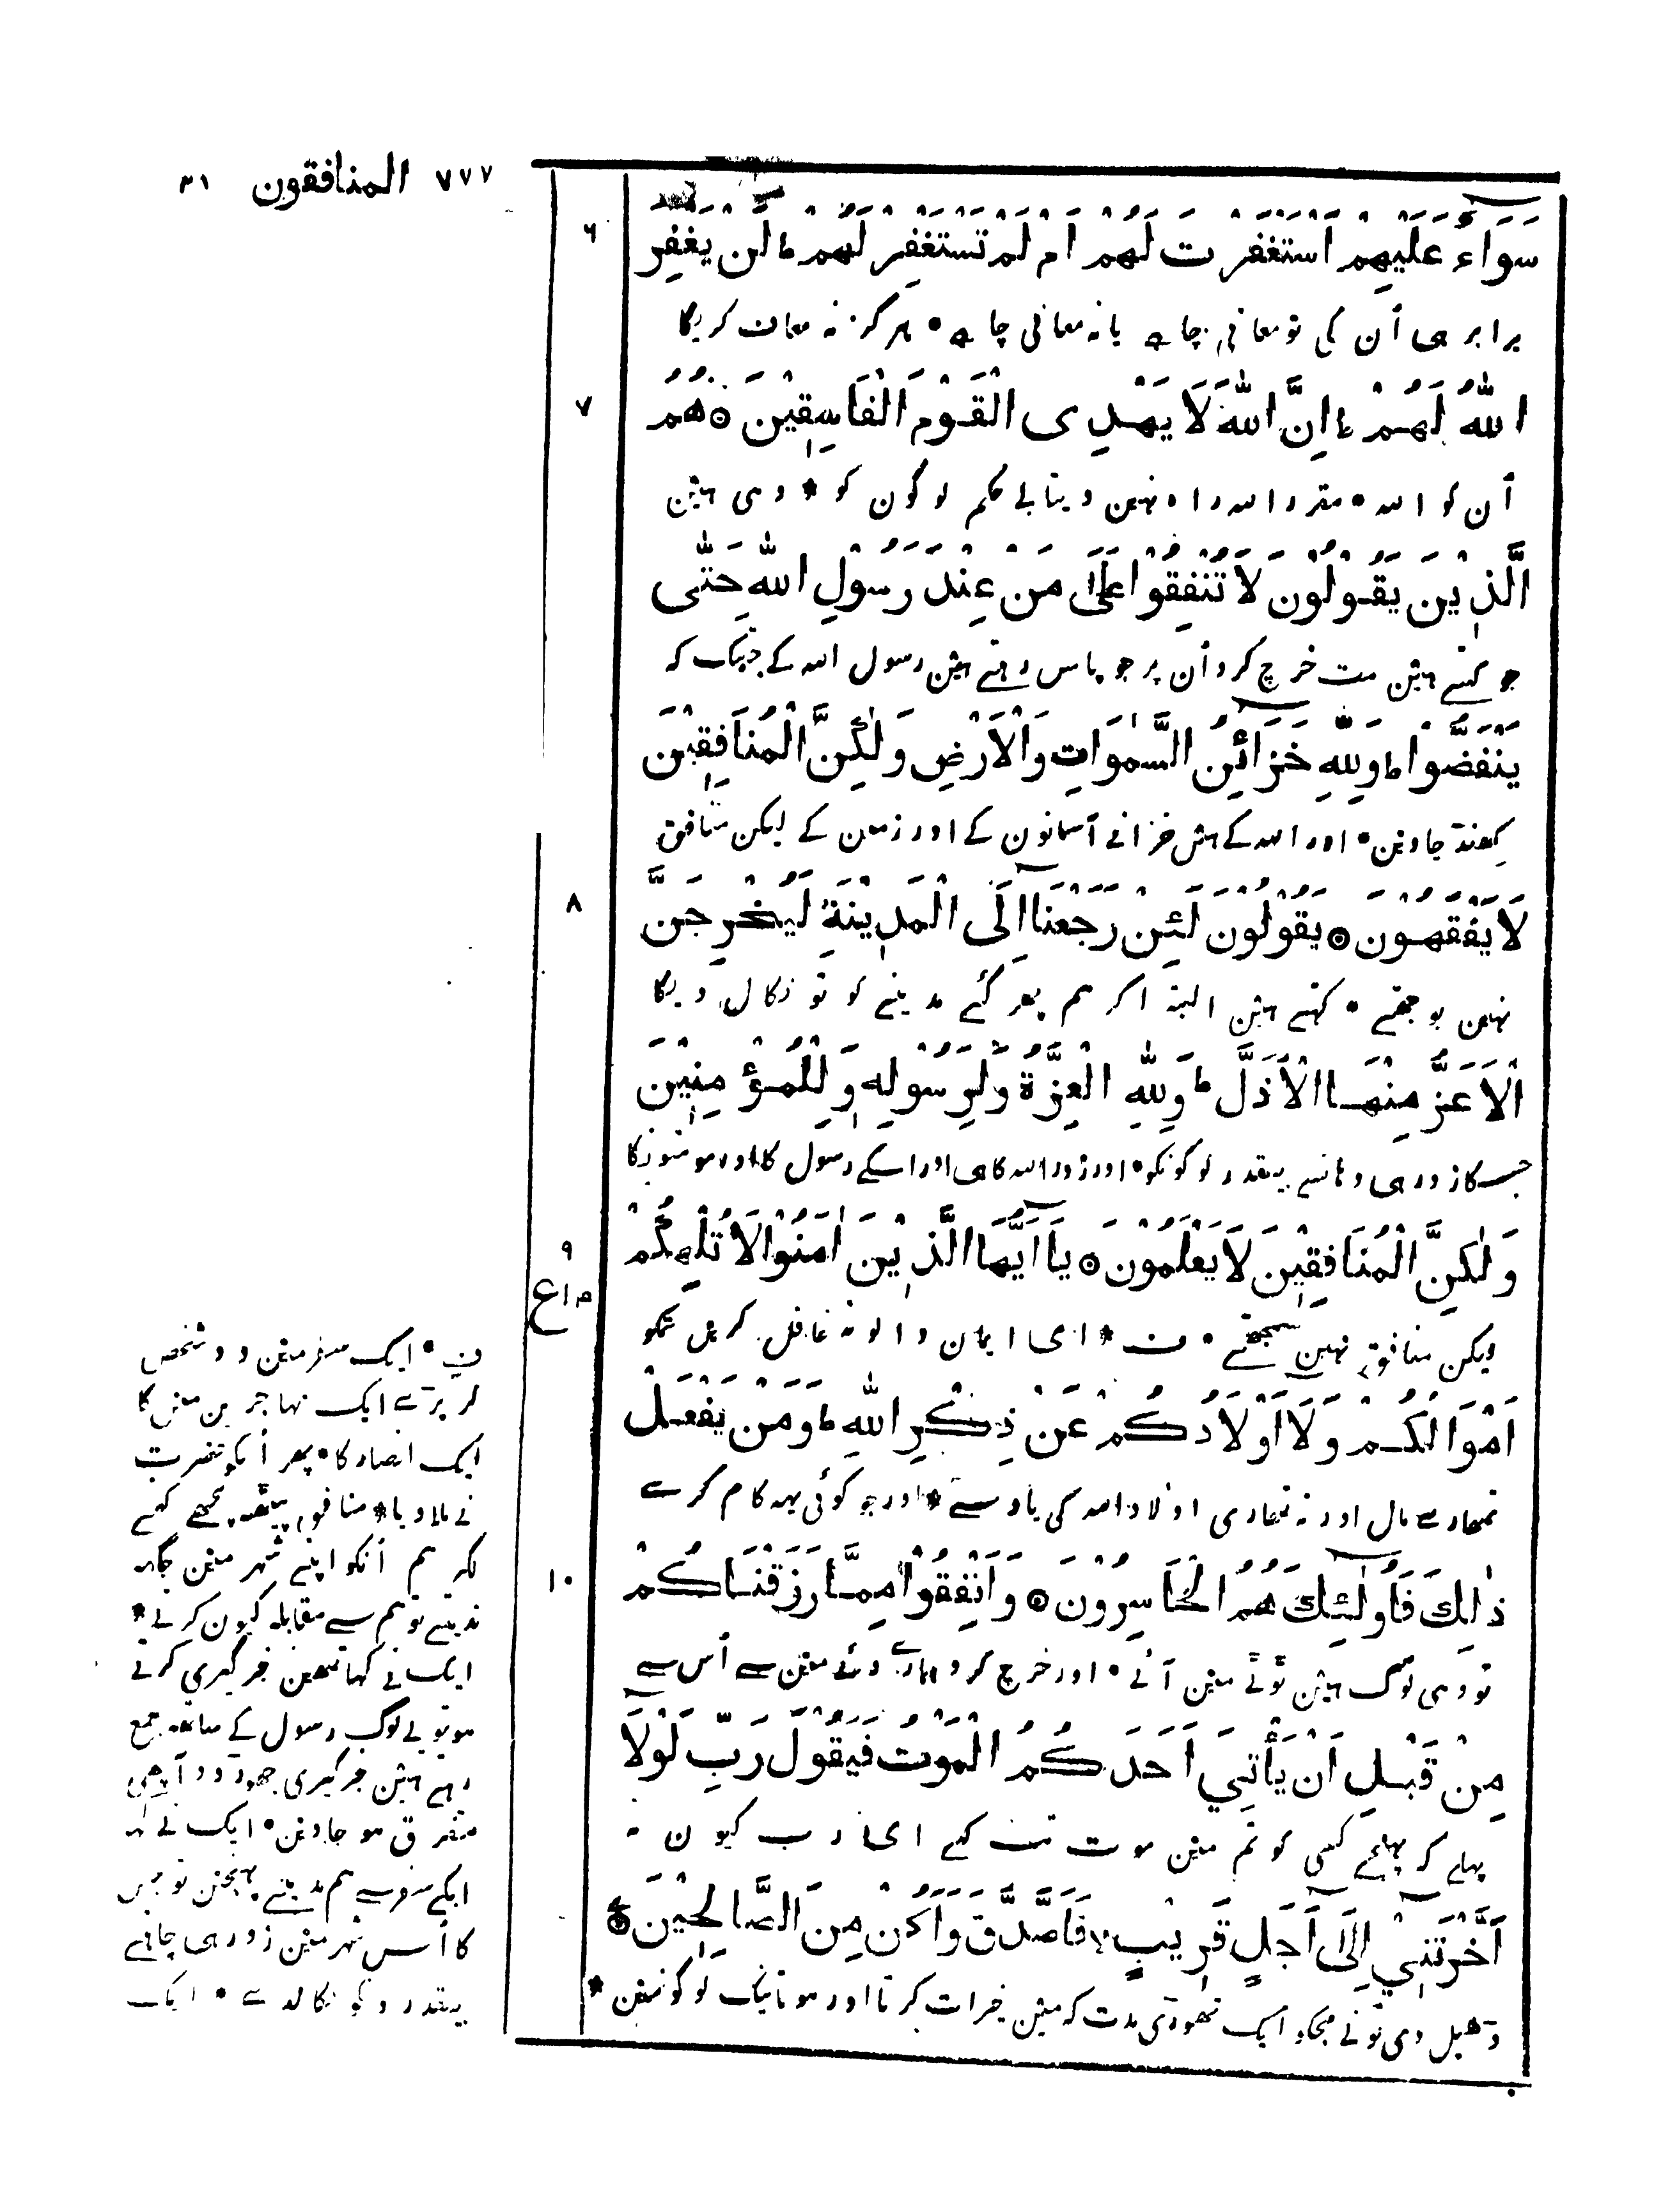 ٧٧٧ المنافقون ٣١
٦
سَوَآءٌ عَلَيْهِمْ اَسْتَغْفَرْتَ لَهُمْ اَمْ لَمْ تَسْتَغْفِرْ لَهُمْ ط لَنْ يَغْفِرَ
برابر هی اُن کی تو معافی چاہے یا نہ معافی چاہے • ہر گز نہ معاف کریگا
٧
اللّٰهُ لَهُمْ ط اِنَّ اللّٰهَ لَا يَهْدِى الْقَوْمَ الْفَاسِقِيْنَ ۝ هُمُ
اُن کو اللہ • مقرر اللہ راہ نہین دیتا بے حکم لوگون کو * وہی ہین
الَّذِيْنَ يَقُوْلُوْنَ لَا تُنْفِقُوْا عَلٰى مَنْ عِنْدَ رَسُوْلِ اللّٰهِ حَتّٰى
جو کہتے ہین مت خرچ کرو اُن پر جو پاس رہتے ہین رسول اللہ کے جبتک کہ
يَنْفَضُّوْا ط وَلِلّٰهِ خَزَآئِنُ السَّمٰوَاتِ وَالْاَرْضِ وَلٰكِنَّ الْمُنَافِقِيْنَ
کھنڈ جاوین • اور اللہ کے ہین خزانے آسمانون کے اور زمین کے لیکن منافق
٨
لَا يَفْقَهُوْنَ ۝ يَقُوْلُوْنَ لَئِنْ رَجَعْنَآ اِلَى الْمَدِيْنَةِ لَيُخْرِجَنَّ
نہین بوجھتے • کہتے ہین البتہ اگر ہم پھر گئے مدینے کو تو نکال دیگا
الْاَعَزُّ مِنْهَا الْاَذَلَّ ط وَلِلّٰهِ الْعِزَّةُ وَلِرَسُوْلِهٖ وَلِلْمُؤْمِنِيْنَ
جسکا زور هی وہانسے بیقدر لوگونکو • اور زور اللہ کا هی اور اسکے رسول کا اور مومنونکا
٩
وَلٰكِنَّ الْمُنَافِقِيْنَ لَا يَعْلَمُوْنَ ۝ يَآ اَيُّهَا الَّذِيْنَ اٰمَنُوْا لَا تُلْهِكُمْ
لیکن منافق نہین سمجھتے • ف * ای ایمان والو نہ غافل کرین تمکو
اَمْوَالُكُمْ وَلَآ اَوْلَادُكُمْ عَنْ ذِكْرِ اللّٰهِ ط وَمَنْ يَفْعَلْ
تمھارے مال اور نہ تمھاری اولاد اللہ کی یاد سے * اور جو کوئی یہہ کام کرے
١٠
ذٰلِكَ فَاُولٰٓئِكَ هُمُ الْخَاسِرُوْنَ ۝ وَاَنْفِقُوْا مِمَّا رَزَقْنَاكُمْ
تو وہی لوگ ہین ٹوٹے مین آئے • اور خرچ کرو ہمارے دئے مین سے اُس سے
مِنْ قَبْلِ اَنْ يَأْتِيَ اَحَدَكُمُ الْمَوْتُ فَيَقُوْلَ رَبِّ لَوْلَآ
پہلے کہ پہنچے کسی کو تم مین موت تب کہے ای رب کیون نہ
اَخَّرْتَنِيْٓ اِلٰٓى اَجَلٍ قَرِيْبٍ لا فَاَصَّدَّقَ وَاَكُنْ مِنَ الصَّالِحِيْنَ ۝
ڈھیل دی تونے مجکو ایک تھوڑی مدت کہ مین خیرات کرتا اور ہوتا نیک لوگونمین *
ف • ایک سفر مین دو شخص
لر پڑے ایک مہاجرین مین کا
ایک انصار کا • پھر اُنکو حضرت
نے ملا دیا * منافق پیٹھہ پیچھے کہنے
لگے ہم اُنکو اپنے شہر مین جگہہ
ندیتے تو ہم سے مقابلہ کیون کرتے *
ایک نے کہا تمھین خبر گیری کرتے
ہو تو یے لوگ رسول کے ساتھہ جمع
رہتے ہین خبر گیری چھوڑ دو آپ هی
متفرق ہو جاوین • ایک نے کہا
ابکے سفر سے ہم مدینے پہنچین تو جس
کا اُس شہر مین زور هی چاہئے
بیقدرو کو نکالدے • ایک